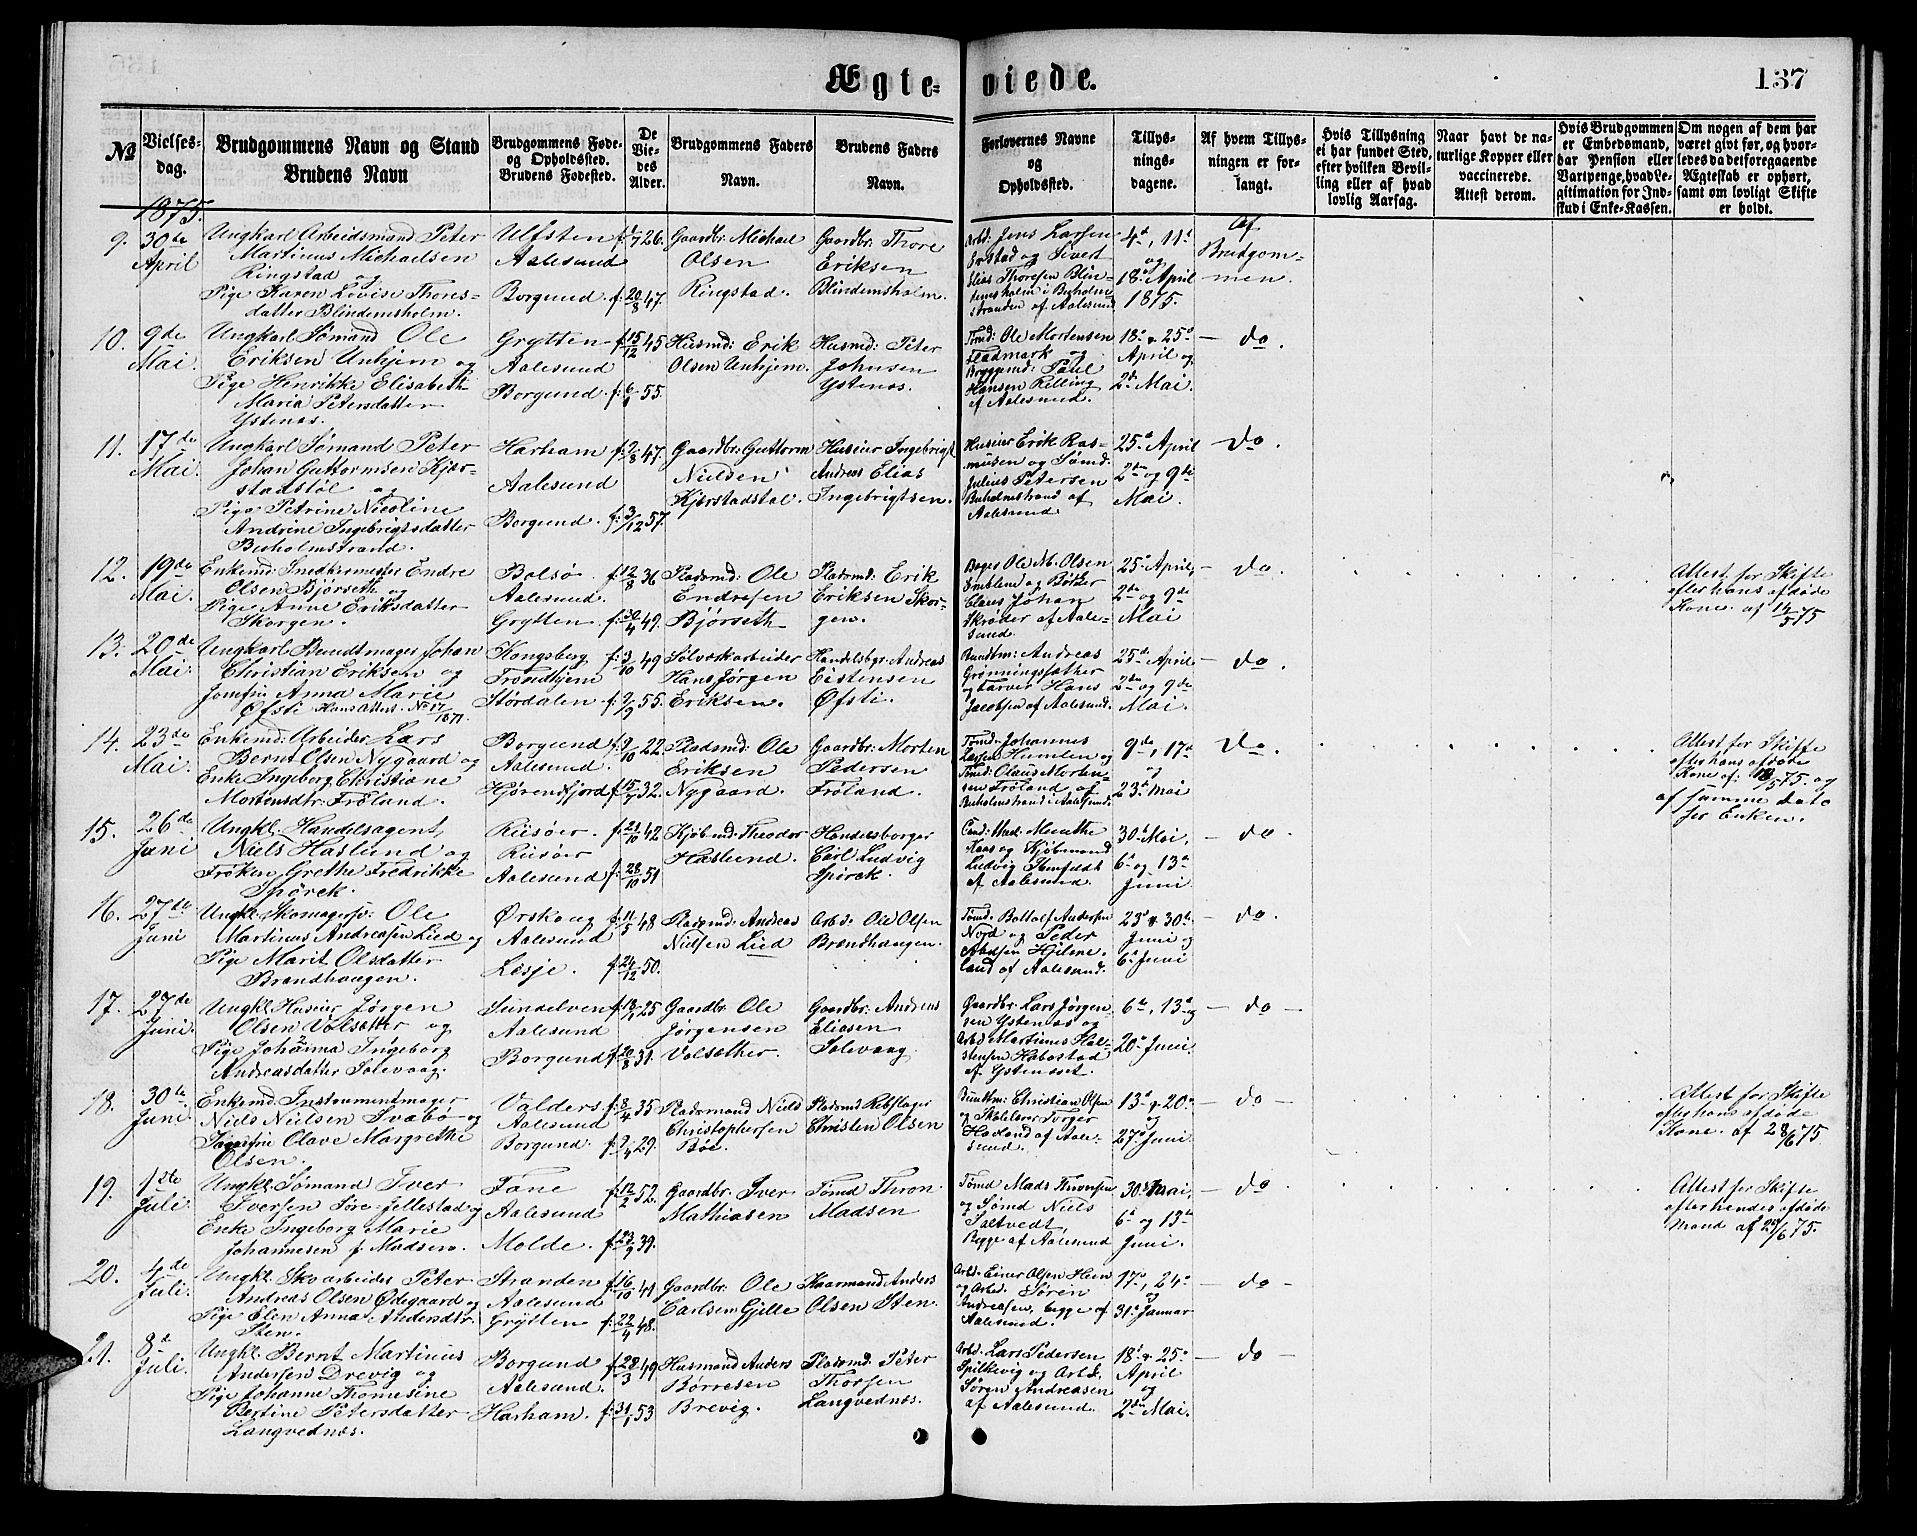 Ægteviede.
137
№
Vielsesdag.
Brudgommens Navn og Stand
Brudens Navn
Brudgommens Føde- og Opholdssted.
Brudens Fødested.
De Viedes Alder.
Brudgommens Faders Navn.
Brudens Faders Navn.
Forlovernes Navne og Opholdssted.
Tillysningsdagene.
Af hvem Tillysningen er forlangt.
Hvis Tillysning ei har fundet Sted, efter hvilken Bevilling eller af hvad lovlig Aarsag.
Naar havt de naturlige Kopper eller vaccinerede. Attest derom.
Hvis Brudgommen er Embedsmand, har Pension eller Vartpenge, hvad Legitimation for Indskud i Enke-Kassen.
Om nogen af dem har været givt før, og hvorledes da det foregaaende Ægteskab er ophørt, samt om lovligt Skifte er holdt.
1875.
9. 30te April
Ungkarl Arbeidsmand Peter
Martinus Michaelsen
Ringstad og
Pige Karen Lovise Thores-
datter Blindemsholm.
Ulfsten
Aalesund
Borgund.
f. 1/7 26.
f. 20/8 47.
Gaardbr. Michael
Olsen
Ringstad.
Gaardbr. Thore
Eriksen
Blindemsholm.
Arbd. Jens Larsen
og Sivert
Elias Thoresen Blin-
demsholm i Buholm-
stranden af Aalesund
4de, 11te
og
18de April
1875.
Af
Brudgom-
men.
10. 9de Mai.
Ungkarl Sømand Ole
Eriksen Unhjem og
Pige Henrikke Elisabeth
Maria Petersdatter
Ystenæs.
Grytten
Aalesund
Borgund.
f. 15/12 45
55.
Husmd: Erik
Olsen Unhjem.
Husmd: Peter
Johnsen
Ystenæs.
Tømd: Ole Mortensen
Fladmark og
Bryggemd: Paul
Hansen Relling
af Aalesund.
18de & 25de
April og
2den Mai.
— do.
11. 17de Mai.
Ungkarl Sømand Peter
Johan Guttormsen Kjær-
stadstøl og
Pige Petrine Nicoline
Andrine Ingebrigtsdatter
Buholmstrand.
Harham
Aalesund
Borgund.
f. 2/8 47.
f. 3/12 57.
Gaardbr: Guttorm
Nielsen
Kjærstadstøl.
Husier Ingebrigt
Andreas Elias
Ingebrigtsen.
Husier Erik Ras-
musen og Sømd:
Julius Petersen
Buholmstrand af
Aalesund.
25de April
2den og 9de
Mai.
— do.
12. 19de Mai.
Enkemd: Snedkermester Endre
Olsen Bjørseth og
Pige Anne Eriksdatter
Skorgen.
Bolsø
Aalesund.
Grytten
f. 12/8 36
f. 30/4 49.
Pladsmd: Ole
Endresen
Bjørseth
Pladsmd: Erik
Eriksen Skor-
gen.
Bager Ole M. Olsen
Emblem og Bøtker
Claus Johan
Skrøder af Aale-
sund.
25de April,
2den og 9de
Mai
— do.
Attest for Skifte
efter hans afdøde
Kone af 14/5 75
13. 20de Mai.
Ungkarl Bundtmager Johan
Christian Eriksen og
Jomfru Anna Marie
Øfsti
Kongsberg
Trondhjem
Størdalen
f. 3/10 49
f. 2/9 55.
Sølvværkarbeider
Hans Jørgen
Eriksen.
Handelsbgr. Andreas
Eistensen
Øfsti.
Bundtm: Andreas
Grønningsæther
og Farver Hans
Jacobsen af Aalesund.
25de April,
2den og 9de
Mai.
— do.
14. 23de Mai.
Enkemd: Arbeider Lars
Bernt Olsen Nygaard og
Enke Ingeborg Christiane
Mortensdtr. Frøland.
Borgund
Aalesund.
Hjørendfjord
f. 9/10 22.
f. 15/7 32.
Pladsmd: Ole
Eriksen
Nygaard.
Gaardbr: Morten
Pedersen
Frøland.
Tømd: Johannes
Larsen Humlen og
Tømd: Olaus Morten-
sen Frøland af
Buholmstrand i Aalesund.
9de, 17de
og
23de Mai
do.
Attest for Skifte
efter hans afdøde
Kone af: 18/5 75. og
af samme Dato
for Enken.
15. 26de Juni
Ungkl. Handelsagent,
Niels Haslund og
Frøken Grethe Fredrikke
Spørck.
Riisøer
Riisøer
Aalesund
f. 21/10 42
f. 28/10 51
Kjøbmd: Theodor
Haslund.
Handelsborger
Carl Ludvig
Spørck.
Cand: Med. Munthe
Kaas og Kjøbmand
Ludvig
af Aalesund.
30te Mai,
6te og 13de
Juni
— do.
16. 27de Juni
Ungkl. Skomagersv: Ole
Martinus Andreasen Lied og
Pige Marit Olsdatter
Brandhaugen.
Ørskoug
Aalesund
Lesje.
f. 11/5 48
f. 24/12 50.
Pladsmd: Andreas
Nielsen Lied
Arbd. Ole Olsen
Brandhaugen.
Tømd. Bottolf Andersen
Nord og Peder
Hjelme-
land af Aalesund.
23de & 30te
Juni og
6te Juni
— do.
17. 27de Juni.
Ungkl. Husier Jørgen
Olsen Valsætter og
Pige Johanna Ingeborg
Andreasdatter Solevaag.
Sundelven
Aalesund
Borgund
25
f. 20/8 31.
Gaardbr. Ole
Jørgensen
Valsæther.
Gaardbr. Andreas
Eliasen
Solevaag
Gaardbr. Lars Jørgen-
sen Ystenæs og
Arbd. Martinus Hal-
stensen Habostad
af Ystenæset.
6te, 13de og
20de Juni.
— do —
18. 30te Juni.
Enkemd. Instrumentmager
Niels Nielsen Svabø og
Jomfru Olave Margrethe
Olsen.
Valders
Aalesund
Borgund.
f. 8/4 35
29.
Pladsmand Niels
Christophersen
Bøe.
Pladsmd Rebslager
Christen Olsen
Bundtm: Christian Olsen
og Skolelærer Torger
Hovland af Aale-
sund.
13de & 20de
og
27de Juni
— do —
Attest for Skifte
efter hans afdøde
Kone. af 28/6 75.
19. 1ste Juli.
Ungkl. Sømand Iver
Iversen Søre-Jellestad og
Enke Ingeborg Marie
Johannesen f. Madsen.
Fane
Aalesund
Molde.
f. 12/2 52.
f. 23/9 39.
Gaardbr. Iver
Mathiasen
Tømd Thron
Madsen
Tømd Mads Thronsen
og Sømd Niels
Saltvedt,
Begge af Aalesund
30te Mai,
6te og 13de
Juni.
— do
Attest for Skifte
efter hendes afdøde
Mand af 25/6 75.
20. 4de Juli.
Ungkl. Skoarbeider Peter
Andreas Olsen Ødegaard og
Pige Elen Anna Andersdtr.
Sten.
Stranden
Aalesund
Grytten
f. 16/10 41
f. 22/4 48.
Gaardbr. Ole
Carlsen Gjelle
Kaarmand Anders
Olsen Sten.
Arbd. Einer Olsen Hien
og Arbd. Søren
Andreasen, begge af
Aalesund.
17de, 24de
og
31te Januar
— do —
21. 8de Juli.
Ungkl. Bernt Martinus
Andersen Brevig og
Pige Johanne Thomesine
Bertine Petersdatter
Langvednæs.
Borgund
Aalesund.
Harham.
f. 28/3 49
f. 31/1 53
Husmand Anders
Børresen
Brevig.
Pladsmd. Peter
Thorsen
Langvednæs.
Arbd. Lars Pedersen
Spilkevig og Arbd.
Søren Andreasen
af Aalesund.
18de & 25de
April
og
2den Mai.
— do —